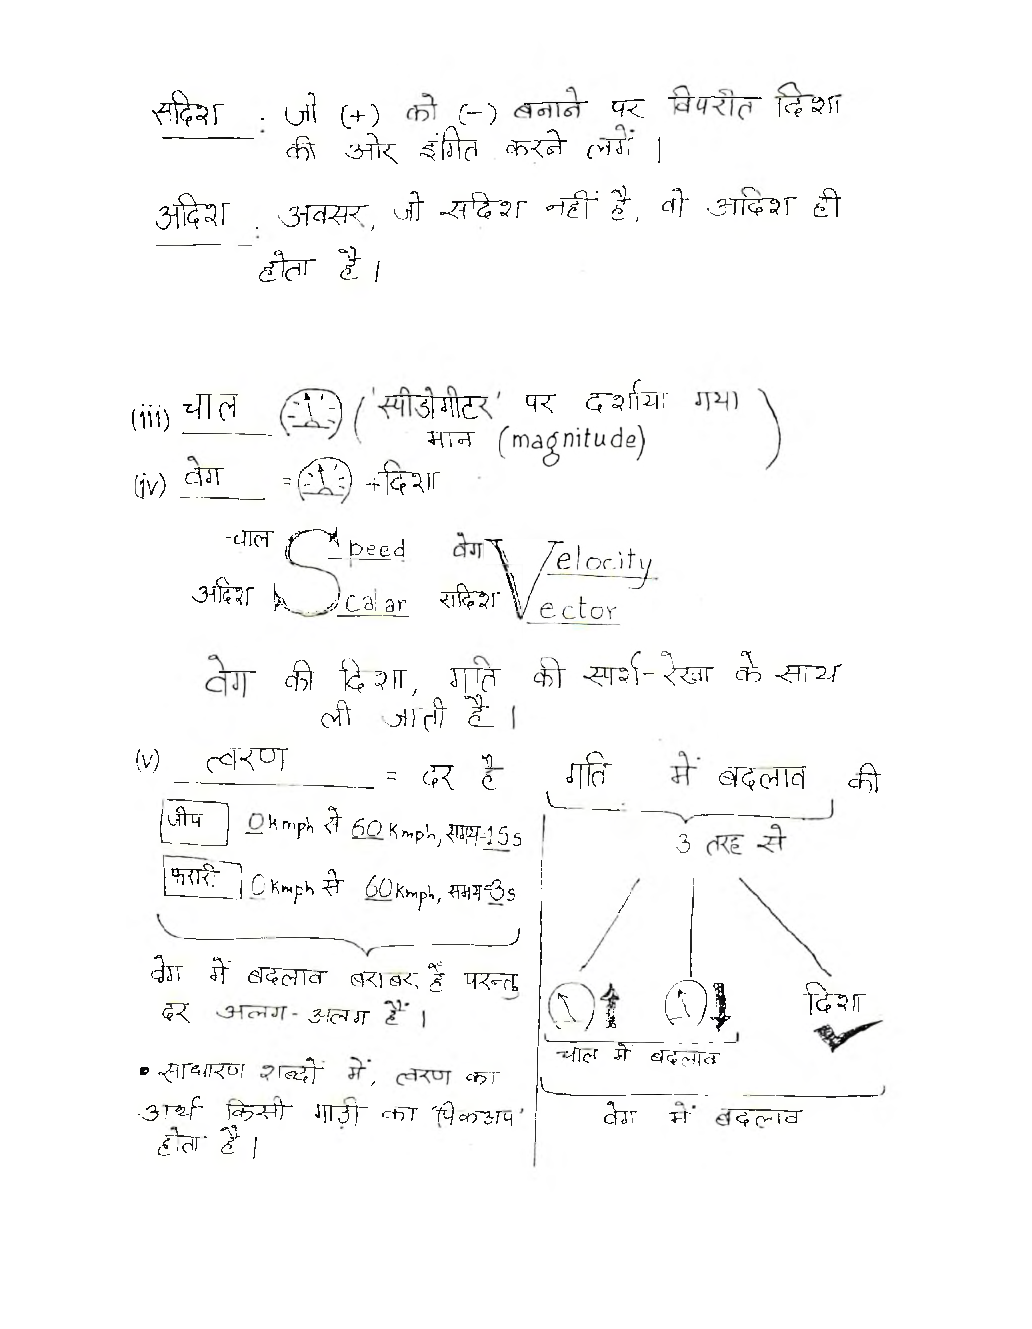 सदिश : जो (+) को (-) बनाने पर विपरीत दिशा
की ओर इंगित करने लगें |
अदिश : अक्सर, जो सदिश नहीं है, वो अदिश ही
होता है |
(iii) चाल ('स्पीडोमीटर' पर दर्शाया गया
मान (magnitude))
(iv) वेग = + दिशा
चाल Speed वेग Velocity
अदिश Scalar सदिश Vector
वेग की दिशा, गति की स्पर्श-रेखा के साथ
ली जाती है |
(v) त्वरण = दर है गति में बदलाव की
जीप 0 Kmph से 60 Kmph, समय-15s
3 तरह से
फरारी 0 Kmph से 60 Kmph, समय-3s
वेग में बदलाव बराबर है परन्तु
दर अलग-अलग हैं |
दिशा
चाल में बदलाव
वेग में बदलाव
• साधारण शब्दों में, त्वरण का
अर्थ किसी गाड़ी का 'पिकअप'
होता है |